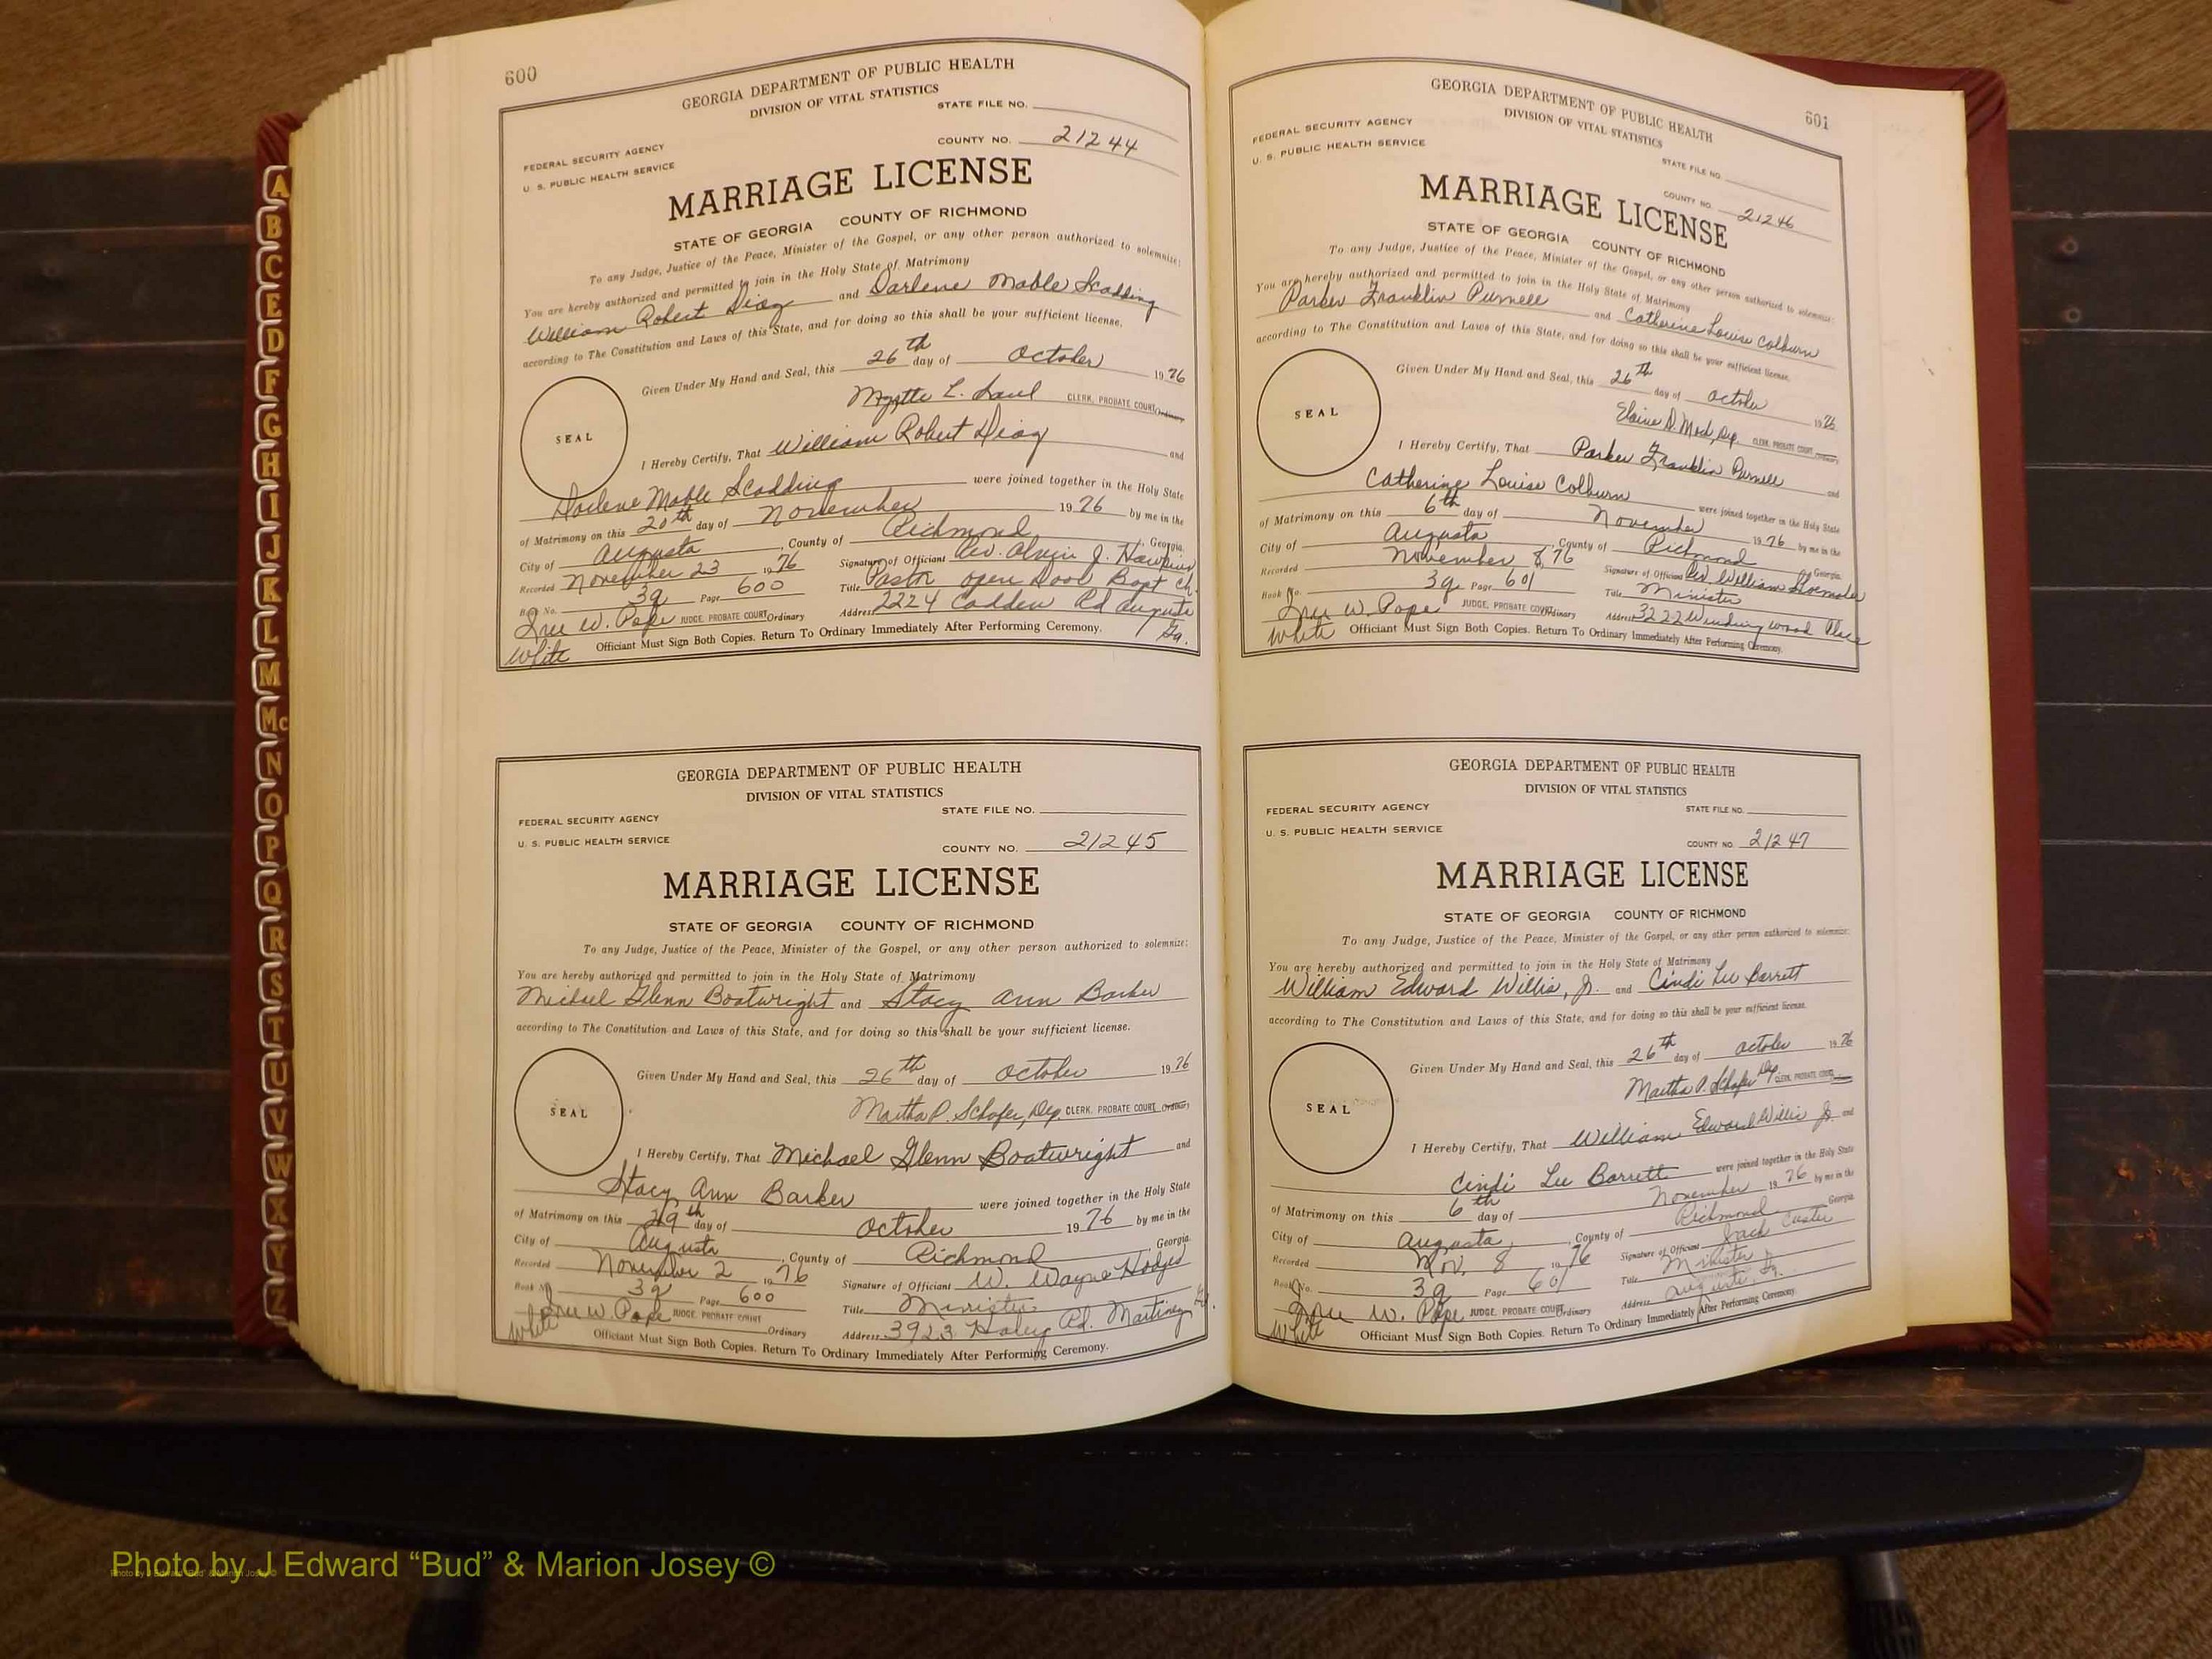 600
GEORGIA DEPARTMENT OF PUBLIC HEALTH
DIVISION OF VITAL STATISTICS
STATE FILE NO.
FEDERAL SECURITY AGENCY
U. S. PUBLIC HEALTH SERVICE
COUNTY NO. 21244
MARRIAGE LICENSE
STATE OF GEORGIA COUNTY OF RICHMOND
To any Judge, Justice of the Peace, Minister of the Gospel, or any other person authorized to solemnize:
You are hereby authorized and permitted to join in the Holy State of Matrimony
William Robert Diaz and Darlene Mable Scadding
according to The Constitution and Laws of this State, and for doing so this shall be your sufficient license.
Given Under My Hand and Seal, this 26th day of October 1976
L. CLERK, PROBATE COURT Ordinary
SEAL
I Hereby Certify, That William Robert Diaz and
Darlene Mable Scadding were joined together in the Holy State
of Matrimony on this 20th day of November 1976 by me in the
City of Augusta, County of Richmond, Georgia.
Recorded November 23 1976 Signature of Officiant Rev. Alvin J. Hawkins
Book No. 39 Page 600 Title Pastor Open Door Bapt Ch.
W. Pope JUDGE, PROBATE COURT Ordinary Address 2224 Cadden Rd Augusta Ga.
White Officiant Must Sign Both Copies. Return To Ordinary Immediately After Performing Ceremony.
GEORGIA DEPARTMENT OF PUBLIC HEALTH
DIVISION OF VITAL STATISTICS
STATE FILE NO.
FEDERAL SECURITY AGENCY
U. S. PUBLIC HEALTH SERVICE
COUNTY NO. 21245
MARRIAGE LICENSE
STATE OF GEORGIA COUNTY OF RICHMOND
To any Judge, Justice of the Peace, Minister of the Gospel, or any other person authorized to solemnize:
You are hereby authorized and permitted to join in the Holy State of Matrimony
Michael Glenn Boatwright and Stacy Ann Barker
according to The Constitution and Laws of this State, and for doing so this shall be your sufficient license.
Given Under My Hand and Seal, this 26th day of October 1976
Martha P. Schafer, Dep. CLERK, PROBATE COURT Ordinary
SEAL
I Hereby Certify, That Michael Glenn Boatwright and
Stacy Ann Barker were joined together in the Holy State
of Matrimony on this 29th day of October 1976 by me in the
City of Augusta, County of Richmond Georgia.
Recorded November 2 1976 Signature of Officiant W. Wayne Hodges
Book No. 39 Page 600 Title Minister
W. Pope JUDGE, PROBATE COURT Ordinary Address 3923 Haley Rd. Martinez
White Officiant Must Sign Both Copies. Return To Ordinary Immediately After Performing Ceremony.
601
GEORGIA DEPARTMENT OF PUBLIC HEALTH
DIVISION OF VITAL STATISTICS
FEDERAL SECURITY AGENCY
U. S. PUBLIC HEALTH SERVICE
STATE FILE NO.
COUNTY NO. 21246
MARRIAGE LICENSE
STATE OF GEORGIA COUNTY OF RICHMOND
To any Judge, Justice of the Peace, Minister of the Gospel, or any other person authorized to solemnize:
You are hereby authorized and permitted to join in the Holy State of Matrimony
Parker Franklin Purnell and Catherine Louise Colburn
according to The Constitution and Laws of this State, and for doing so this shall be your sufficient license.
Given Under My Hand and Seal, this 26th day of October 1976
Elaine D. Dep. CLERK, PROBATE COURT Ordinary
SEAL
I Hereby Certify, That Parker Franklin Purnell and
Catherine Louise Colburn were joined together in the Holy State
of Matrimony on this 6th day of November 1976 by me in the
City of Augusta, County of Richmond Georgia.
Recorded November 8, 76 Signature of Officiant Rev. William
Book No. 39 Page 601 Title Minister
W. Pope JUDGE, PROBATE COURT Ordinary Address 3222 Place
White Officiant Must Sign Both Copies. Return To Ordinary Immediately After Performing Ceremony.
GEORGIA DEPARTMENT OF PUBLIC HEALTH
DIVISION OF VITAL STATISTICS
FEDERAL SECURITY AGENCY
STATE FILE NO.
U. S. PUBLIC HEALTH SERVICE
COUNTY NO. 21247
MARRIAGE LICENSE
STATE OF GEORGIA COUNTY OF RICHMOND
To any Judge, Justice of the Peace, Minister of the Gospel, or any other person authorized to solemnize:
You are hereby authorized and permitted to join in the Holy State of Matrimony
William Edward Willis, Jr. and Cindi Lee Barrett
according to The Constitution and Laws of this State, and for doing so this shall be your sufficient license.
Given Under My Hand and Seal, this 26th day of October 1976
Martha P. Schafer Dep. CLERK, PROBATE COURT
SEAL
I Hereby Certify, That William Edward Willis Jr. and
Cindi Lee Barrett were joined together in the Holy State
of Matrimony on this 6th day of November 1976 by me in the
City of Augusta, County of Richmond Georgia
Recorded Nov. 8 1976 Signature of Officiant Jack
Book No. 39 Page 601 Title Minister
W. Pope JUDGE, PROBATE COURT Ordinary Address Augusta, Ga.
White Officiant Must Sign Both Copies. Return To Ordinary Immediately After Performing Ceremony.
A
B
C
E
D
F
G
H
I
J
K
L
M
Mc
N
O
P
Q
R
S
T
U
V
W
X
Y
Z
Photo by J Edward “Bud” & Marion Josey ©
Photo by J Edward “Bud” & Marion Josey ©